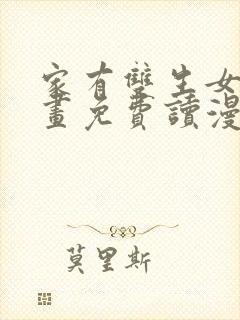 家有雙生女
畫免費讀漫
莫里斯